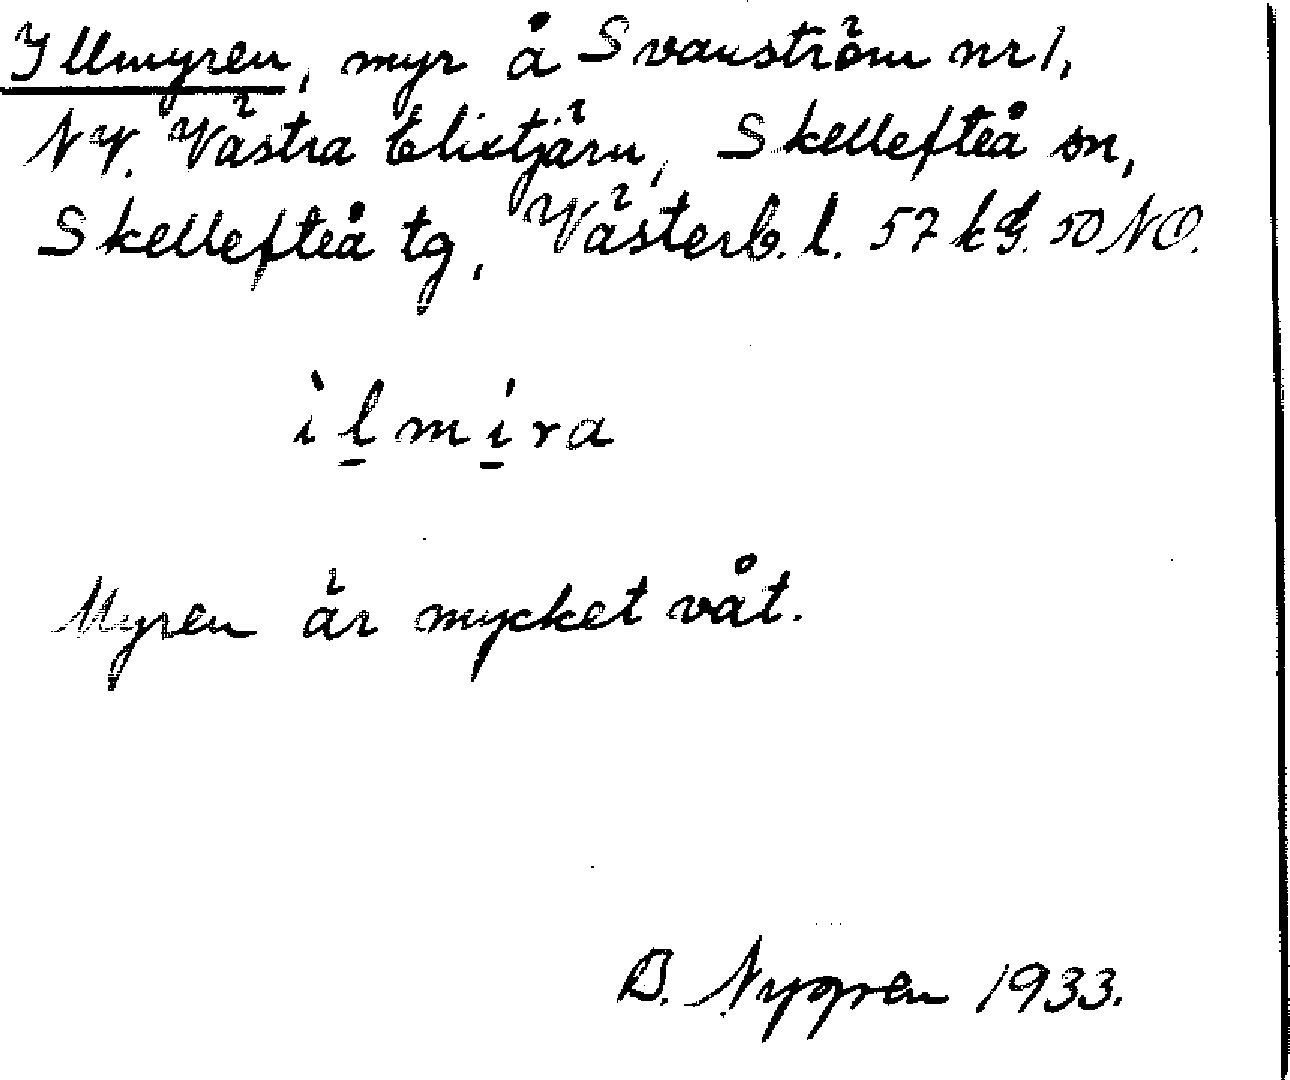 Illmyren, myr å Svanström nr 1,
NV. Västra Elixtjärn, Skellefteå sn,
Skellefteå tg, Västerb. l. 57 k G. 50 NO.
ìl̠mi̠ra
Myren är mycket våt.
B. Nygren 1933.